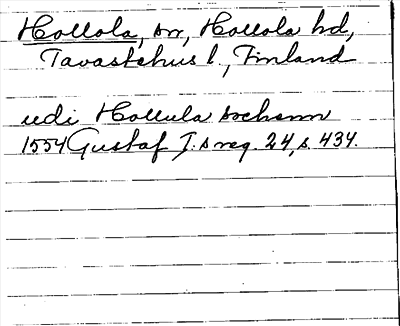 Hollola, sn, Hollola hd,
Tavastehus l., Finland
udi Hollula sochenn
1554 Gustaf I:s reg. 24, s. 434.